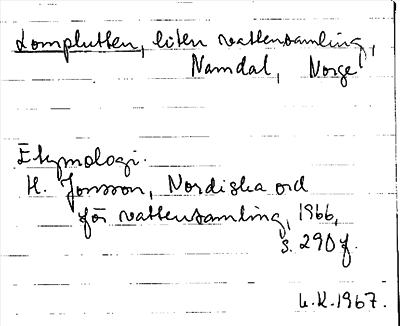 Lomplutten, liten vattensamling,
Namdal, Norge
Etymologi.
H. Jonsson, Nordiska ord
för vattensamling, 1966,
s. 290 f.
U.K. 1967.